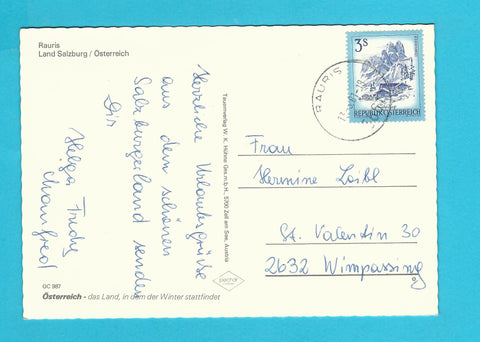 Rauris
Land Salzburg / Österreich
Herzliche Urlaubsgrüße
aus dem schönen
Salzburgerland senden
Dir
Helga Trudy
Manfred
GC 987
Österreich - das Land, in dem der Winter stattfindet
Traumverlag W. K. Hühne Ges.m.b.H., 5700 Zell am See, Austria
RAURIS
3S
REPUBLIK ÖSTERREICH
Frau
Hermine Loibl
St. Valentin 30
2632 Wimpassing